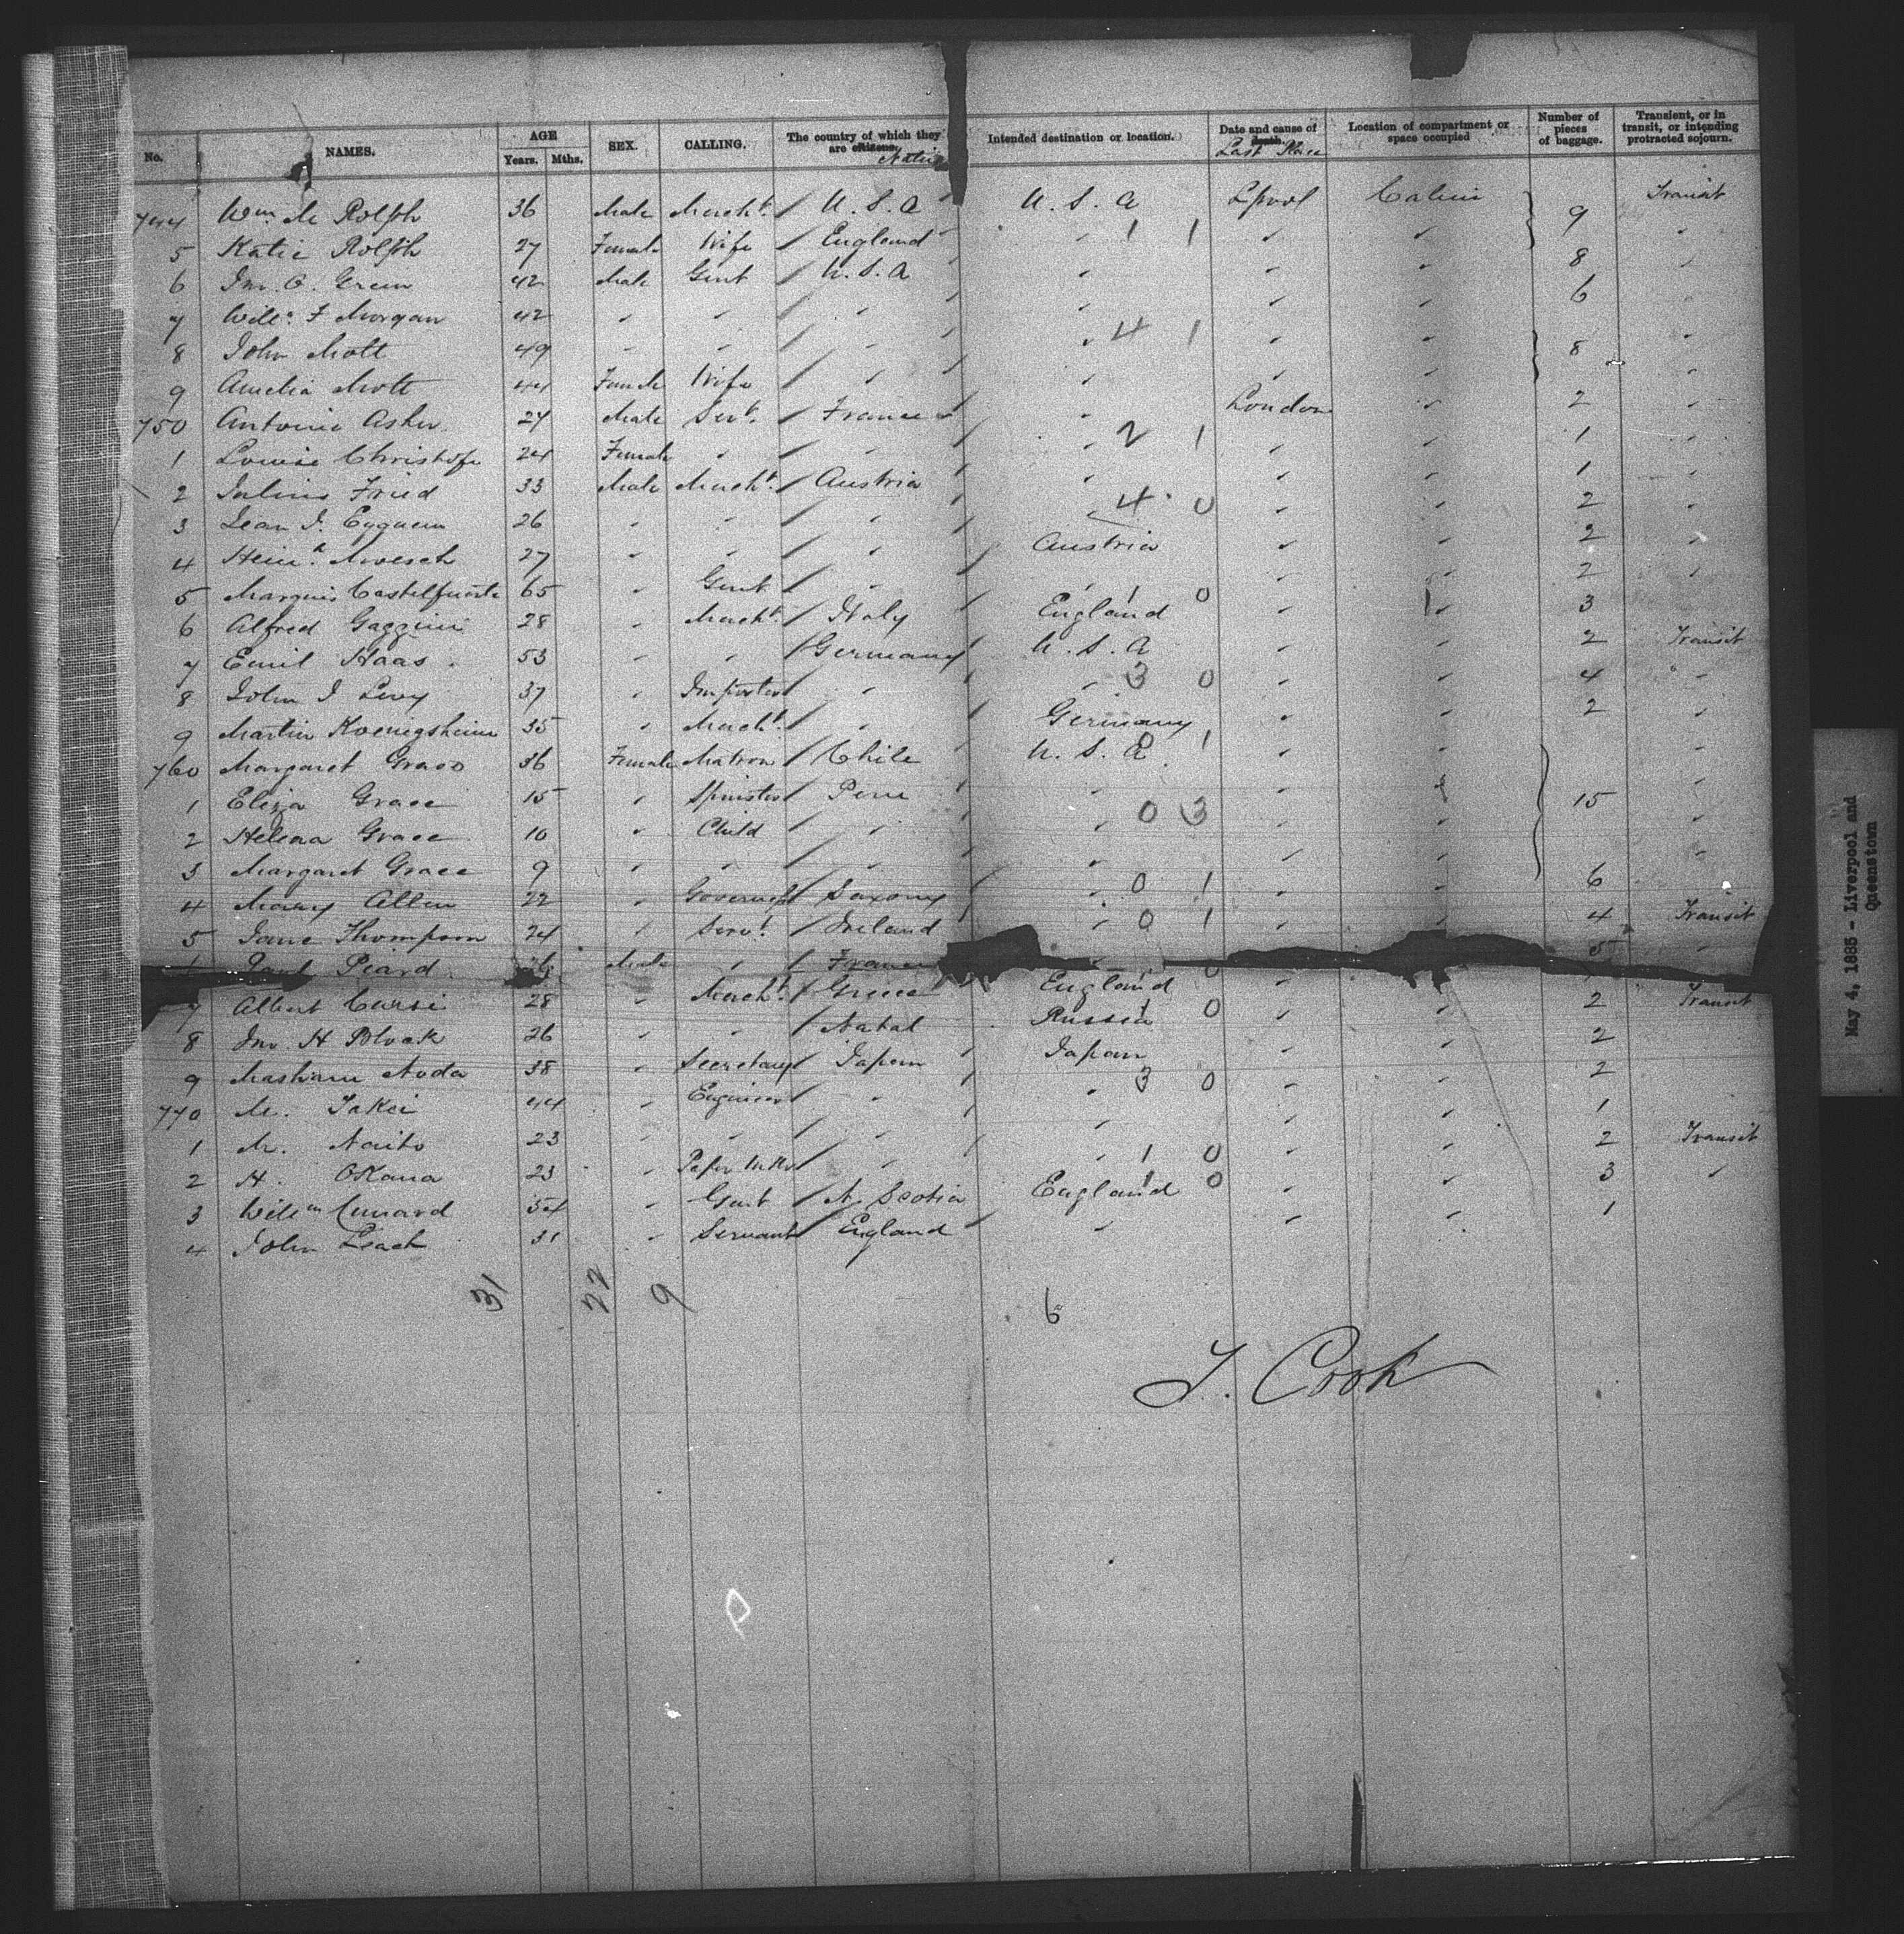 No. NAMES. AGE Years. Mths. SEX. CALLING. The country of which they are citizens. Native Intended destination or location. Date and cause of death. Last Place Location of compartment or space occupied Number of pieces of baggage. Transient, or in transit, or intending protracted sojourn.
744 Wm M Rolph 36 Male Mercht. / U.S.A U.S.A Lpool Cabin 9 Transit
5 Katie Rolph 27 Female Wife / England " 1 1 " " "
6 Jno. O. Green 42 Male Gent / U.S.A " " " 8 "
7 Will. F Morgan 42 " " / " " " " 6 "
8 John Mott 49 " " / " " 4 1 " " 8 "
9 Amelia Mott 44 Female Wife / " " " " "
750 Antoine Asher 24 Male Servt. / France " London " 2 "
1 Louise 24 Female " / " " 2 1 " " 1 "
2 Julius Fried 33 Male Mercht. / Austria " " " 1 "
3 Jean J. Eyquem 26 " " / " " 4 0 " " 2 "
4 Heinh. Moesch 27 " " / " Austria " " 2 "
5 Marquis 65 " Gent / " " 1 0 " " 2 "
6 Alfred Gazzini 28 " Mercht. / Italy England " " 3
7 Emil Haas 53 " " / Germany U.S.A " " 2 Transit
8 John J Levy 37 " Importer / " " 3 0 " " 4 "
9 Martin Koenigsheim 35 " Mercht. / " Germany " " 2 "
760 Margaret Grace 36 Female Matron / Chile U.S.A 1 " " "
1 Eliza Grace 15 " Spinster / Peru " " " 15 "
2 Helena Grace 10 " Child / " " 0 3 " " "
3 Margaret Grace 9 " " / " " " " "
4 Mary Allen 22 " Governess / Saxony " 0 1 " " 6
5 Jane Thompson 24 " Servt. / Ireland " 0 1 " " 4 Transit
Paul Piard 26 Male " / France " "
7 Albert 28 " Mercht. / Greece England " "
8 Jno. H Block 26 " " / Natal Russia 1 0 " " 2 Transit
9 Noda 38 " Secretary / Japan Japan " " 2
770 M. Takei 44 " Engineer / " " 3 0 " " 2
1 M. Naito 23 " " / " " " " 1
2 H. OKana 23 " Paper Mkr / " " 1 0 " " 2 Transit
3 Willm Cunard 54 " Gent / N. Scotia England 1 0 " " 3 "
4 John Leach 31 " Servant / England " " " 1
31 22 9 6
J. Cook
May 4, 1885 - Liverpool and
Queenstown